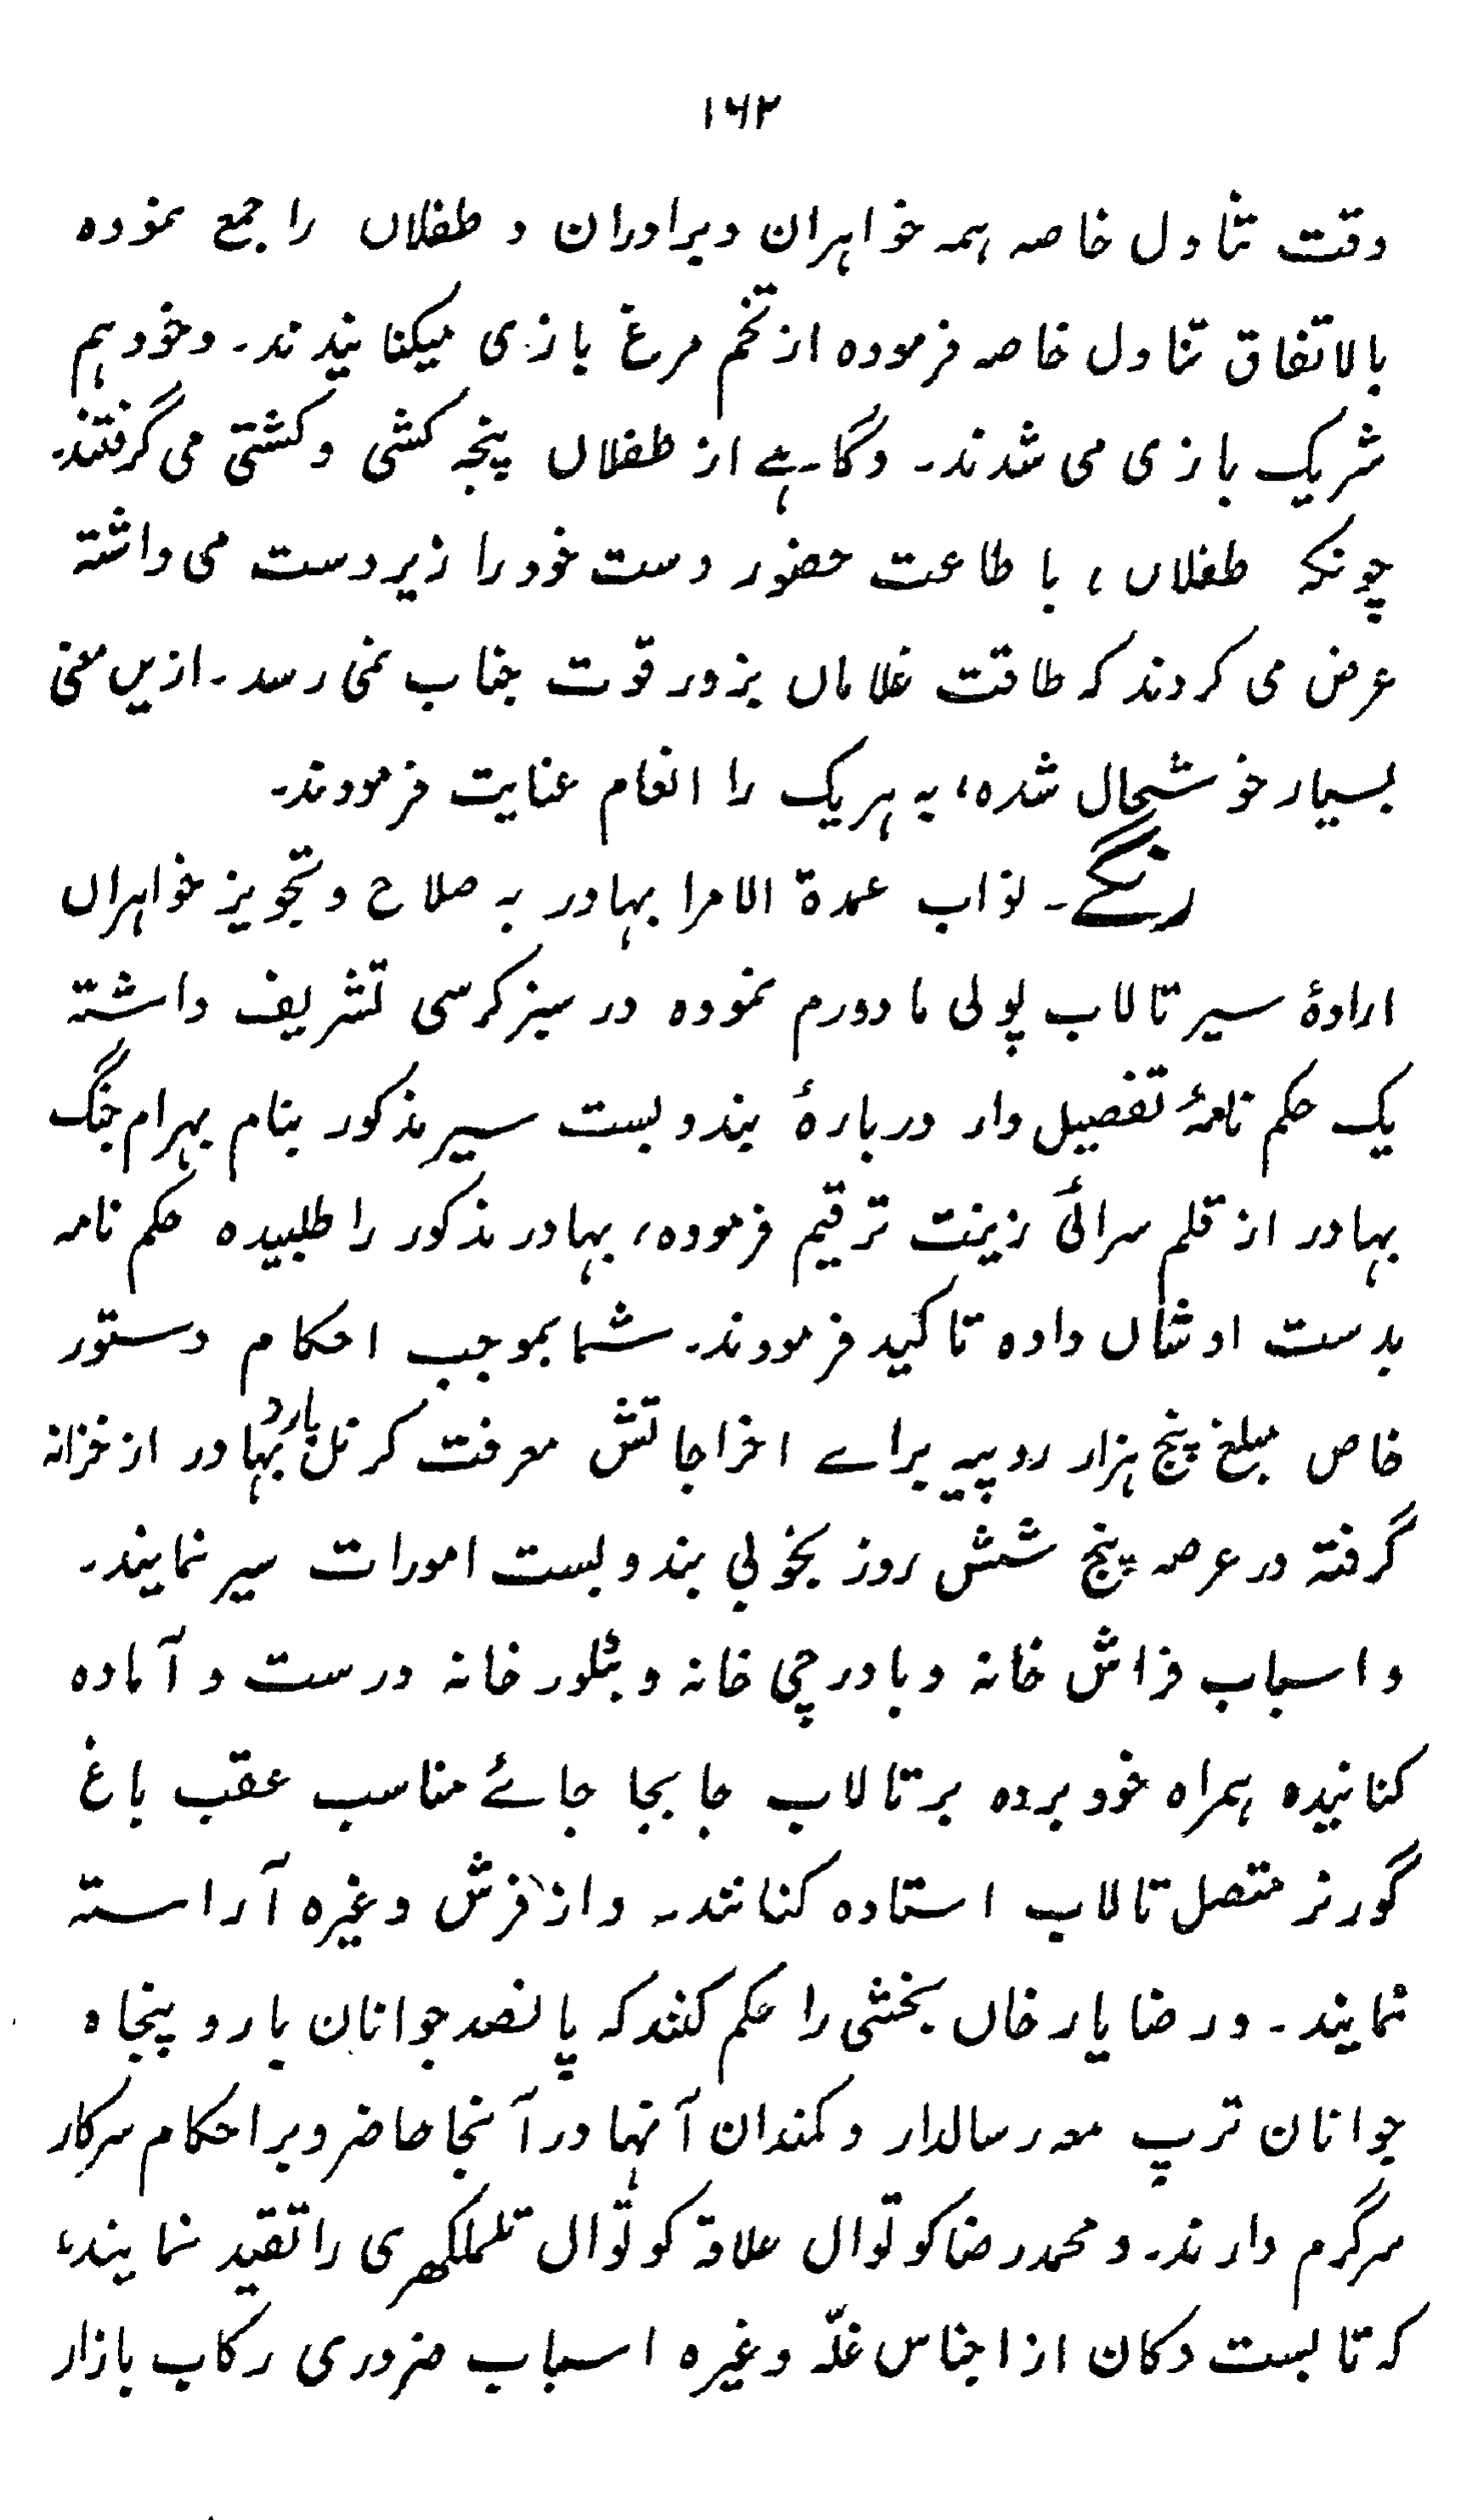 ۱۶۲
وقت تناول خاصہ ہمہ خواہران وبرادران و طفلاں را جمع نمودہ
بالاتفاق تناول خاصہ فرمودہ از تخم مرغ بازی میکنانیدند۔ وخود ہم
شریک بازی می شدند۔ وگاہے از طفلاں پنجہ کشی وکشتی می گرفتند۔
چونکہ طفلاں، باطاعت حضور دست خود را زیر دست می داشتہ
عرض می کردند کہ طاقت غلاماں بزور قوت جناب نمی رسد۔ ازیں معنی
بسیار خوشحال شدہ، بہ ہریک را انعام عنایت فرمودند۔
رنگے۔ نواب عمدۃ الامرا بہادر بہ صلاح وتجویز خواہراں
ارادۂ سیر تالاب پولی مادورم نمودہ در سبز کرسی تشریف داشتہ
یک حکم نامۂ تفصیل وار دربارۂ بندوبست سیر مذکور بنام بہرام جنگ
بہادر از قلم سرائی زینت ترقیم فرمودہ، بہادر مذکور را طلبیدہ حکم نامہ
بدست اوشاں دادہ تاکید فرمودند۔ شما بموجب احکام دستور
خاص مبلغ پنج ہزار روپیہ برائے اخراجاتش معرفت کرنل بارد بہادر از خزانہ
گرفتہ در عرصہ پنج شش روز بخوبی بندوبست امورات سیر نمایند۔
و اسباب فراش خانہ وباورچی خانہ و بلور خانہ درست و آمادہ
کنانیدہ ہمراہ خود بردہ بر تالاب جابجا جائے مناسب عقب باغ
گورنر متصل تالاب استادہ کنانند۔ واز فرش وغیرہ آراستہ
نمایند۔ ورضا یار خاں بخشی را حکم کنند کہ پانصد جوانان بار و پنجاہ
جوانان ترپ معہ رسالدار وکمندان آنہا در آنجا حاضر وبر احکام سرکار
سرگرم دارند۔ و محمد رضا کوتوال علاقہ کوتوال تلملکھری را تقید نمایند،
کہ تا بست دکان از اجناس غلّہ وغیرہ اسباب ضروری رکاب بازار